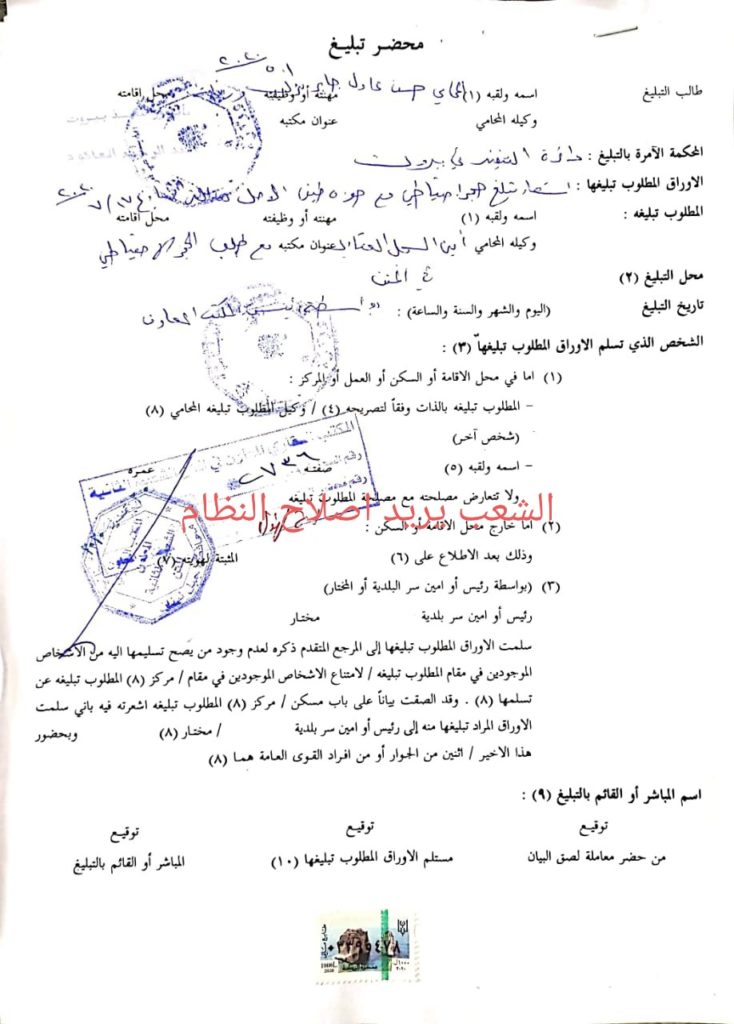 محضر تبليغ
٥٠١
٢٠٢٠
طالب التبليغ اسمه ولقبه (١) المحامي حسن عادل مهنته أو وظيفته محل اقامته
وكيله المحامي عنوان مكتبه
المحكمة الآمرة بالتبليغ : دائرة التنفيذ في بيروت
الاوراق المطلوب تبليغها : تبليغ حجز احتياطي مع صورة طبق الاصل
٢٠٢٠
المطلوب تبليغه : اسمه ولقبه (١) مهنته أو وظيفته محل اقامته
وكيله المحامي أمين السجل العقاري عنوان مكتبه مع طلب الحجز الاحتياطي
في المتن
محل التبليغ (٢)
تاريخ التبليغ (اليوم والشهر والسنة والساعة) : بواسطة رئيس المكتب المعاون
الشخص الذي تسلم الاوراق المطلوب تبليغها (٣) :
(١) اما في محل الاقامة أو السكن أو العمل أو المركز :
– المطلوب تبليغه بالذات وفقاً لتصريحه (٤) / وكيل المطلوب تبليغه المحامي (٨)
(شخص آخر)
– اسمه ولقبه (٥) صفته عمره
المكتب العقاري المعاون في
٢٧٣٦
ولا تتعارض مصلحته مع مصلحة المطلوب تبليغه
الشعب يريد اصلاح النظام
(٢) اما خارج محل الاقامة أو السكن :
وذلك بعد الاطلاع على (٦) المثبتة لهويته (٧)
(٣) (بواسطة رئيس أو امين سر البلدية أو المختار)
رئيس أو امين سر بلدية مختار
سلمت الاوراق المطلوب تبليغها إلى المرجع المتقدم ذكره لعدم وجود من يصح تسليمها اليه من الاشخاص
الموجودين في مقام المطلوب تبليغه / لامتناع الاشخاص الموجودين في مقام / مركز (٨) المطلوب تبليغه عن
تسلمها (٨) . وقد الصقت بياناً على باب مسكن / مركز (٨) المطلوب تبليغه اشعرته فيه باني سلمت
الاوراق المراد تبليغها منه إلى رئيس أو امين سر بلدية / مختار (٨) وبحضور
هذا الاخير / اثنين من الجوار أو من افراد القوى العامة هما (٨)
اسم المباشر أو القائم بالتبليغ (٩) :
توقيع توقيع توقيع
من حضر معاملة لصق البيان مستلم الاوراق المطلوب تبليغها (١٠) المباشر أو القائم بالتبليغ